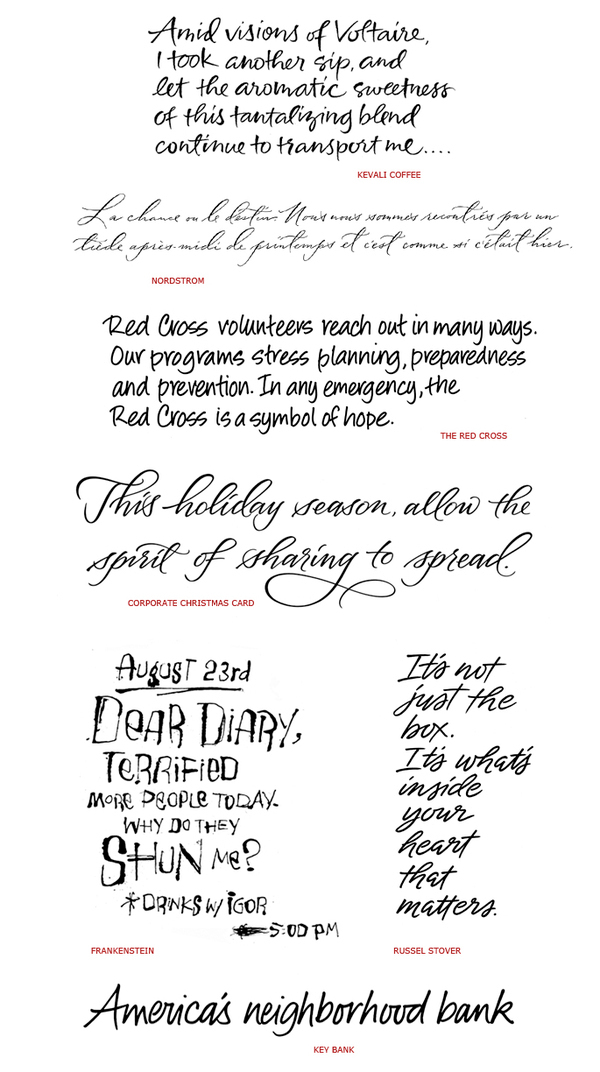 Amid visions of Voltaire,
I took another sip, and
let the aromatic sweetness
of this tantalizing blend
continue to transport me....
KEVALI COFFEE
La chance ou le destin. Nous nous sommes recontrés par un
tiède après-midi de printemps et c'est comme si c'était hier.
NORDSTROM
Red Cross volunteers reach out in many ways.
Our programs stress planning, preparedness
and prevention. In any emergency, the
Red Cross is a symbol of hope.
THE RED CROSS
This holiday season, allow the
spirit of sharing to spread.
CORPORATE CHRISTMAS CARD
August 23rd
Dear Diary,
Terrified
more people today.
Why do they
shun me?
*Drinks w/ Igor
5:00 pm
FRANKENSTEIN
It's not
just the
box.
It's what's
inside
your
heart
that
matters.
RUSSEL STOVER
America's neighborhood bank
KEY BANK